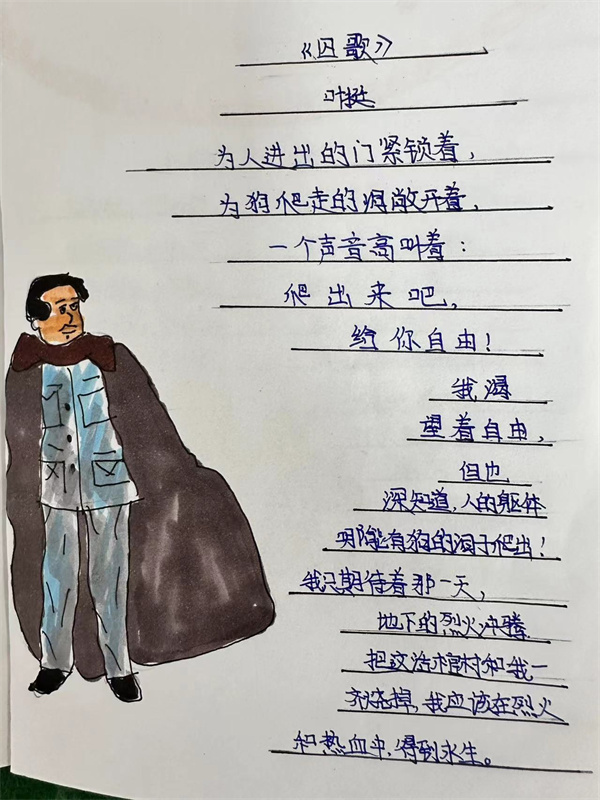 《囚歌》
叶挺
为人进出的门紧锁着,
为狗爬走的洞敞开着,
一个声音高叫着:
爬出来吧,
给你自由!
我渴
望着自由,
但也
深知道,人的躯体
哪能有狗的洞子爬出!
我只期待着那一天,
地下的烈火冲腾
把这活棺材和我一
齐烧掉,我应该在烈火
和热血中,得到永生。